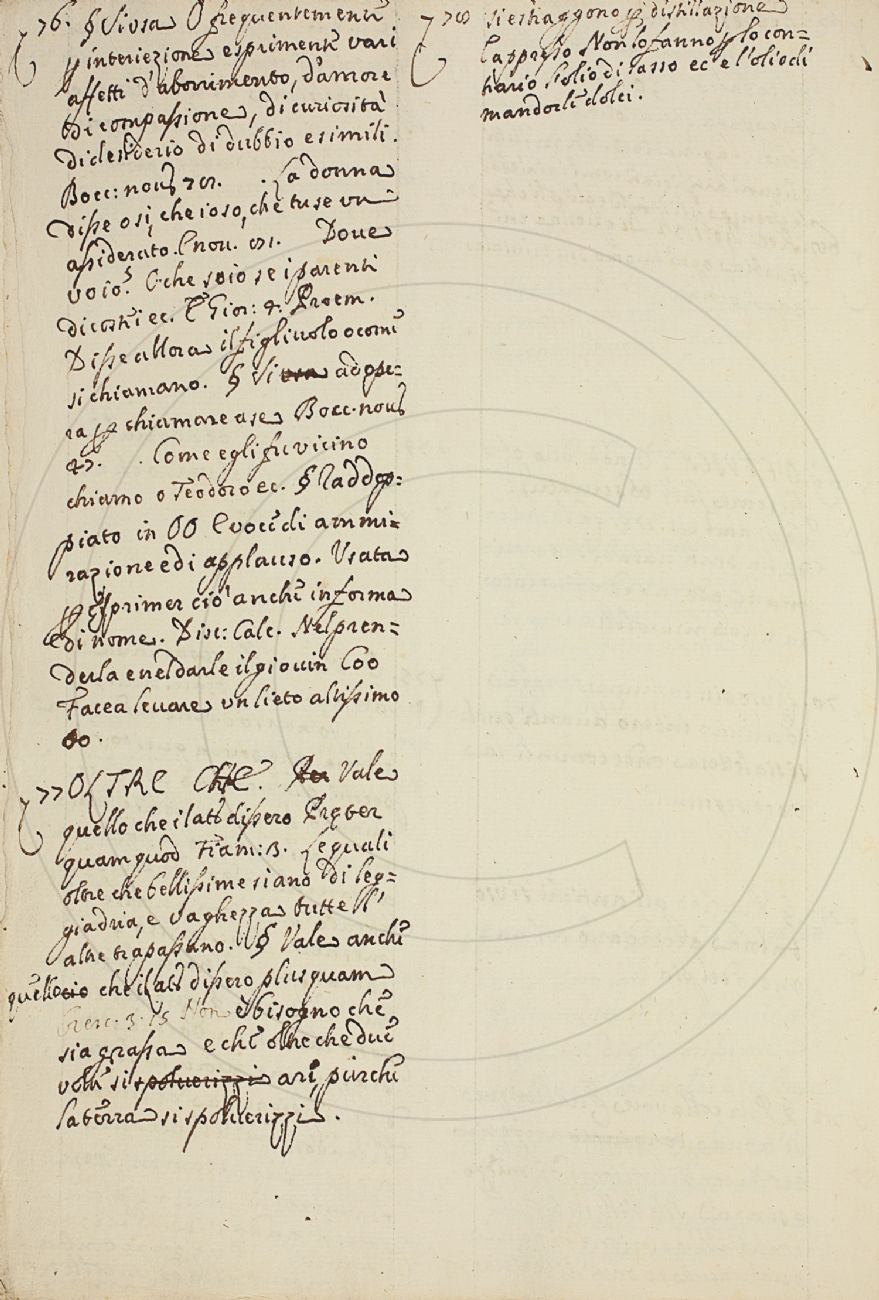 776. § Si usa O frequentemente
p interiezione esprimente vari
affetti d'aborrimento, d'amore
di compassione, di curiosità
di desiderio di dubbio e simili.
Bocc: nov. La donna
disse o si, che io so, che tu se un
assiderato. E nov. Dove
vo io? O che so io se i parenti
di costei ec. E Gior: 4. Proem.
Disse allora il figliuolo o come
si chiamano. § Si usa adope=
ra p chiamare a se Bocc. nov.
Come egli fu vicino
chiamo o Teodoro ec. § Raddop=
piato in OO E voce di ammi=
razione e di applauso. Usata
p esprimer ciò anche in forma
di nome. Disc: Calc. Nel pren=
derla e nel darle il giovin Coo
Facea levare un lieto altissimo
oo.
777 OLTRE CHE. Vale
quello che i lati dissero Preter
quam quod Fiam: 3. Le quali
oltre che bellissime siano di leg=
giadria, e vaghezza tutte ll'
altre trapassano. § Vale anche
quello cio che i lati dissero plus quam
Cresc. 3. 15 Non è bisogno che
sia grassa e che oltre che due
volte si spolverizzi ari, purche
la terra si spolverizzi.
778 si estraggono p distillazione
l'appresso Non lo fanno p lo con=
trario l'olio di sasso ec e l'olio di
mandorle dolci.